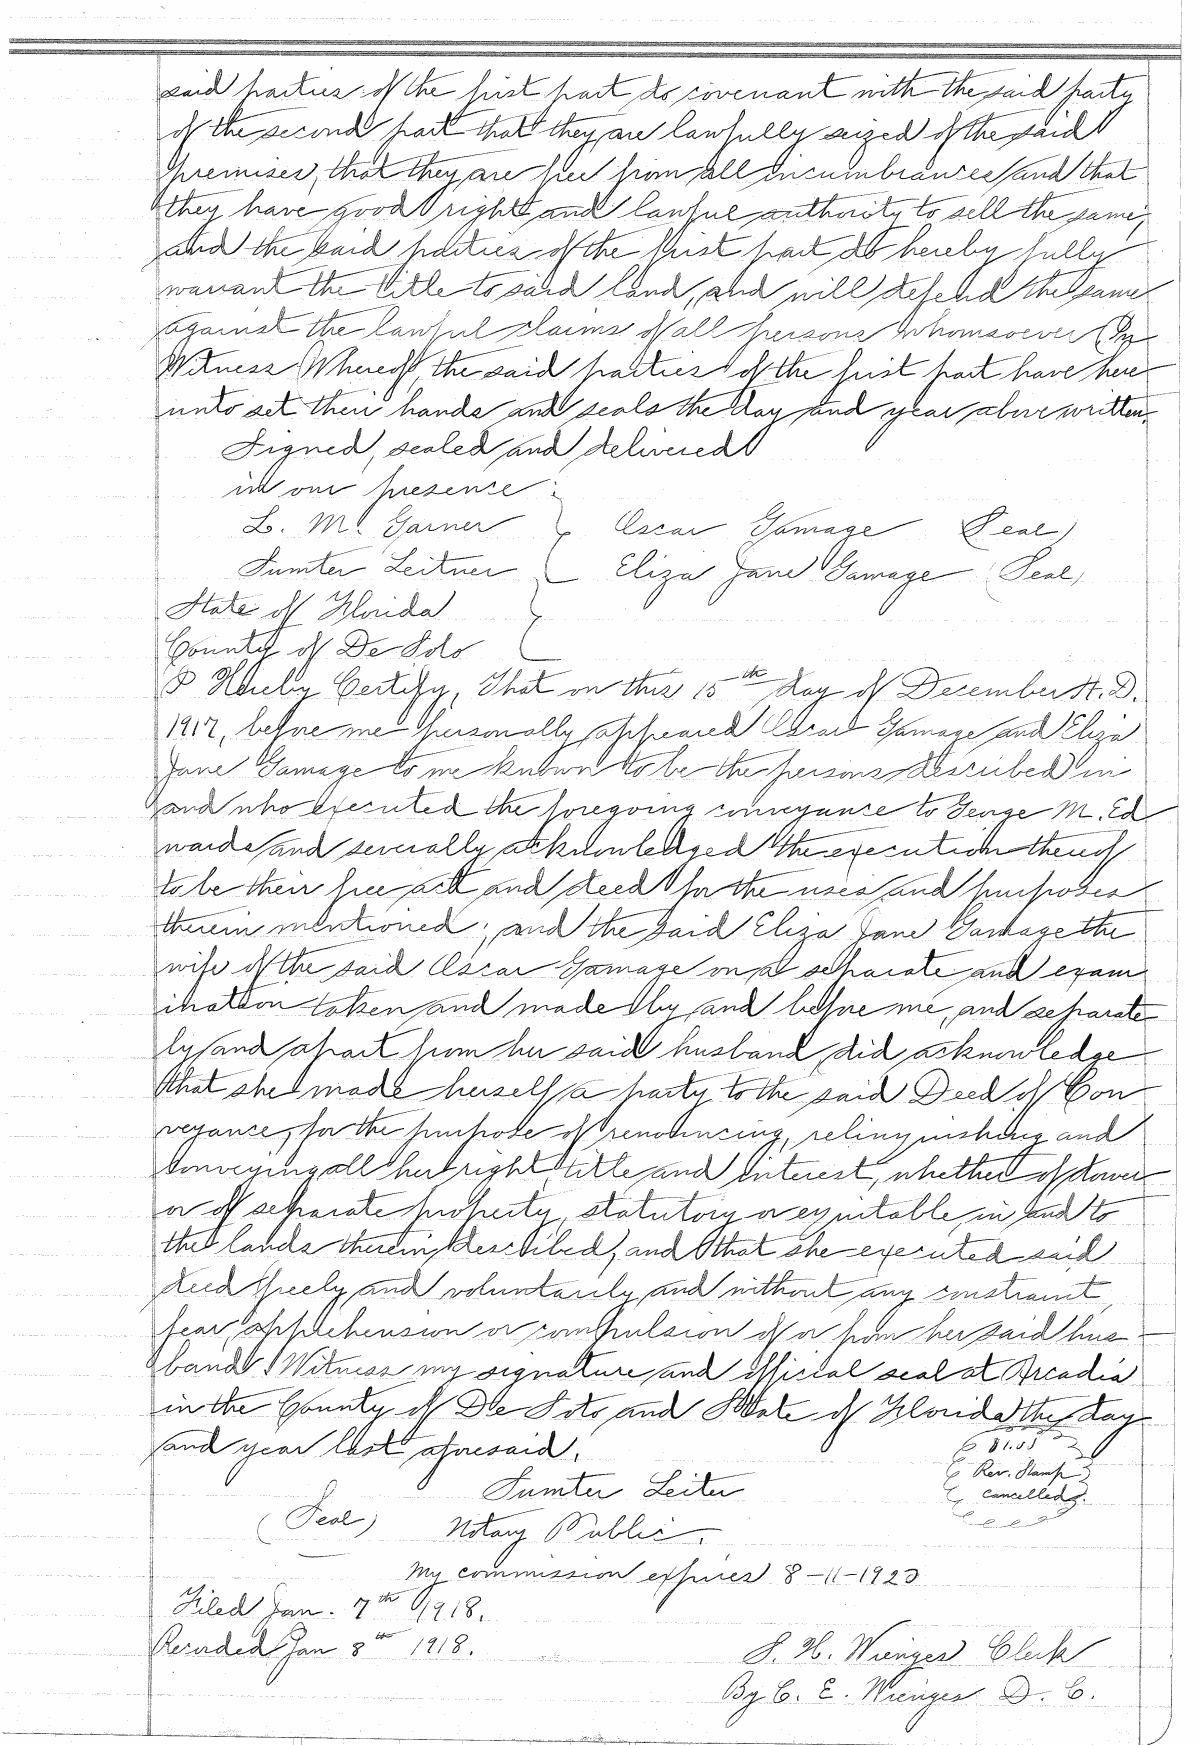 said parties of the first part do covenant with the said party
of the second part that they are lawfully seized of the said
premises, that they are free from all incumbrances and that
they have good right and lawful authority to sell the same,
and the said parties of the first part do hereby fully
warrant the title to said land, and will defend the same
against the lawful claims of all persons whomsoever In
Witness Whereof, the said parties of the first part have here
unto set their hands and seals the day and year above written.
Signed, sealed and delivered
in our presence:
L. M. Garner Oscar Gamage (Seal)
Sumter Leitner Eliza Jane Gamage (Seal)
State of Florida
County of De Soto
I Hereby Certify, That on this 15th day of December A. D.
1917, before me personally appeared Oscar Gamage and Eliza
Jane Gamage to me known to be the persons described in
and who executed the foregoing conveyance to George M. Ed
wards and severally acknowledged the execution thereof
to be their free act and deed for the uses and purposes
therein mentioned; and the said Eliza Jane Gamage the
wife of the said Oscar Gamage on a separate and exam
ination taken and made by and before me, and separate
ly and apart from her said husband, did acknowledge
that she made herself a party to the said Deed of Con
veyance, for the purpose of renouncing, relinquishing and
conveying all her right, title and interest, whether of dower
or of separate property, statutory or equitable, in and to
the lands therein described, and that she executed said
deed freely and voluntarily and without any constraint,
fear, apprehension or compulsion of or from her said hus-
band. Witness my signature and official seal at Arcadia
in the County of De Soto and State of Florida the day
and year last aforesaid.
Rev. Stamp
Cancelled.
Sumter Leiter
(Seal) Notary Public.
My commission expires 8-11-1920
Filed Jan. 7th 1918.
Recorded Jan 8th 1918.
S. H. Wienges Clerk
By C. E. Wienges D. C.